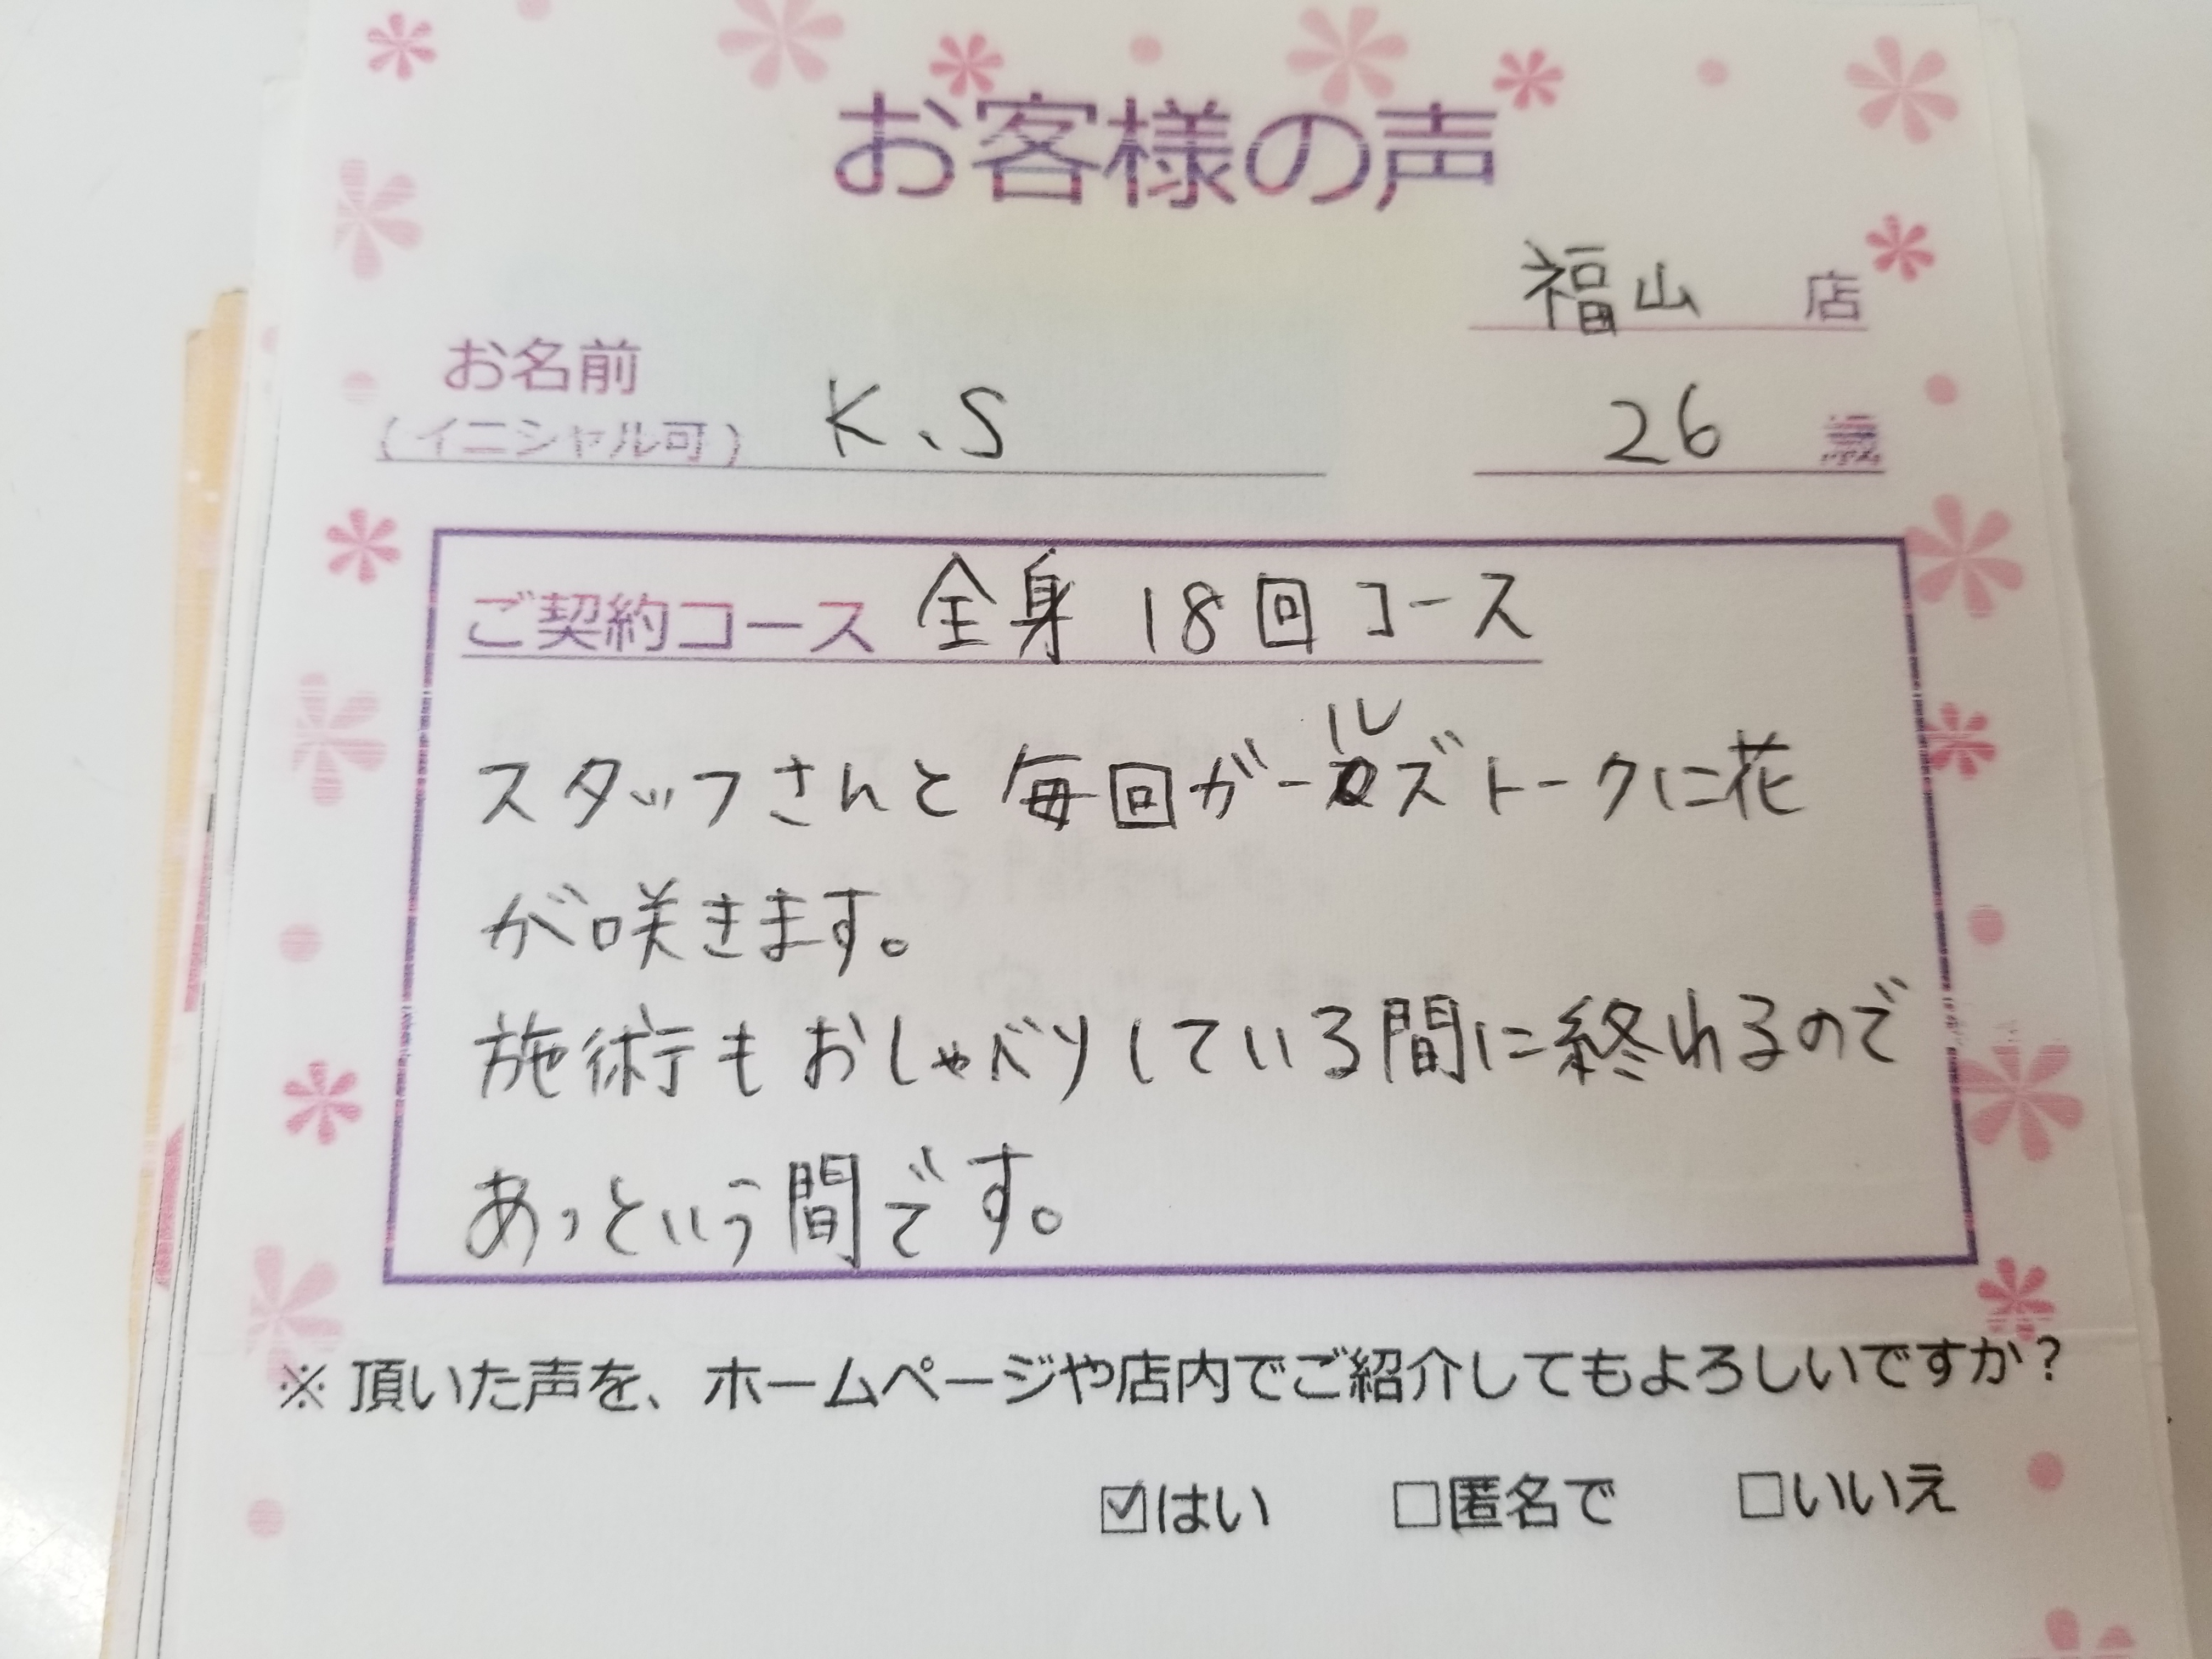 お客様の声
福山 店
お名前
(イニシャル可) K.S 26 歳
ご契約コース 全身 18回 コース
スタッフさんと 毎回がールズトークに花
が咲きます。
施術もおしゃべりしている間に終れるので
あっという間です。
※頂いた声を、ホームページや店内でご紹介してもよろしいですか?
☑はい □匿名で □いいえ